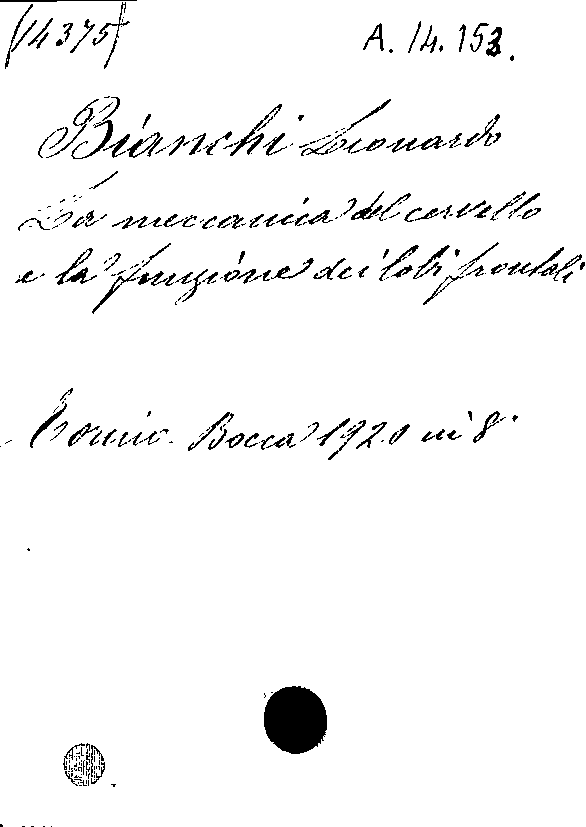 (14375) A. 14. 153.
Bianchi Leonardo
La meccanica del cervello
e la funzione dei lobi frontali
Torino. Bocca 1920 in 8°